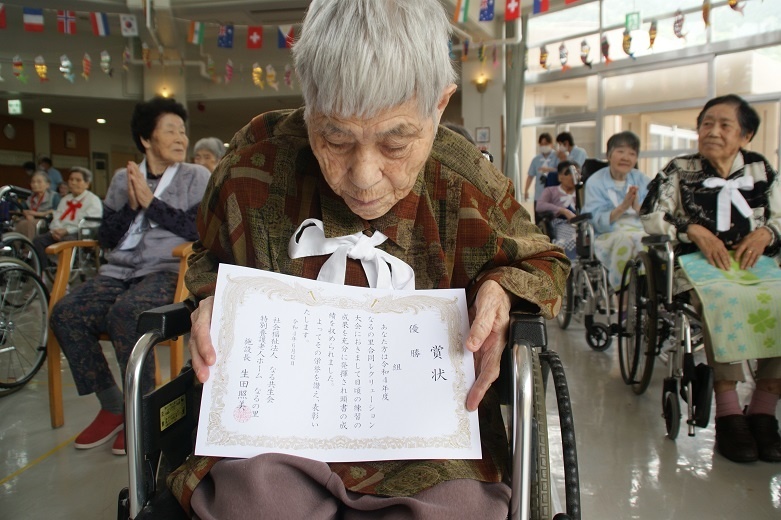 賞状
優勝
組
あなた方は令和4年度
なるの里合同レクリェーション
大会におきまして日頃の練習の
成果を充分に発揮され頭書の成
績を収められました
よってその栄誉を讃え、表彰い
たします
令和4年
社会福祉法人 なると会
特別養護老人ホーム なるの里
施設長 生田照美